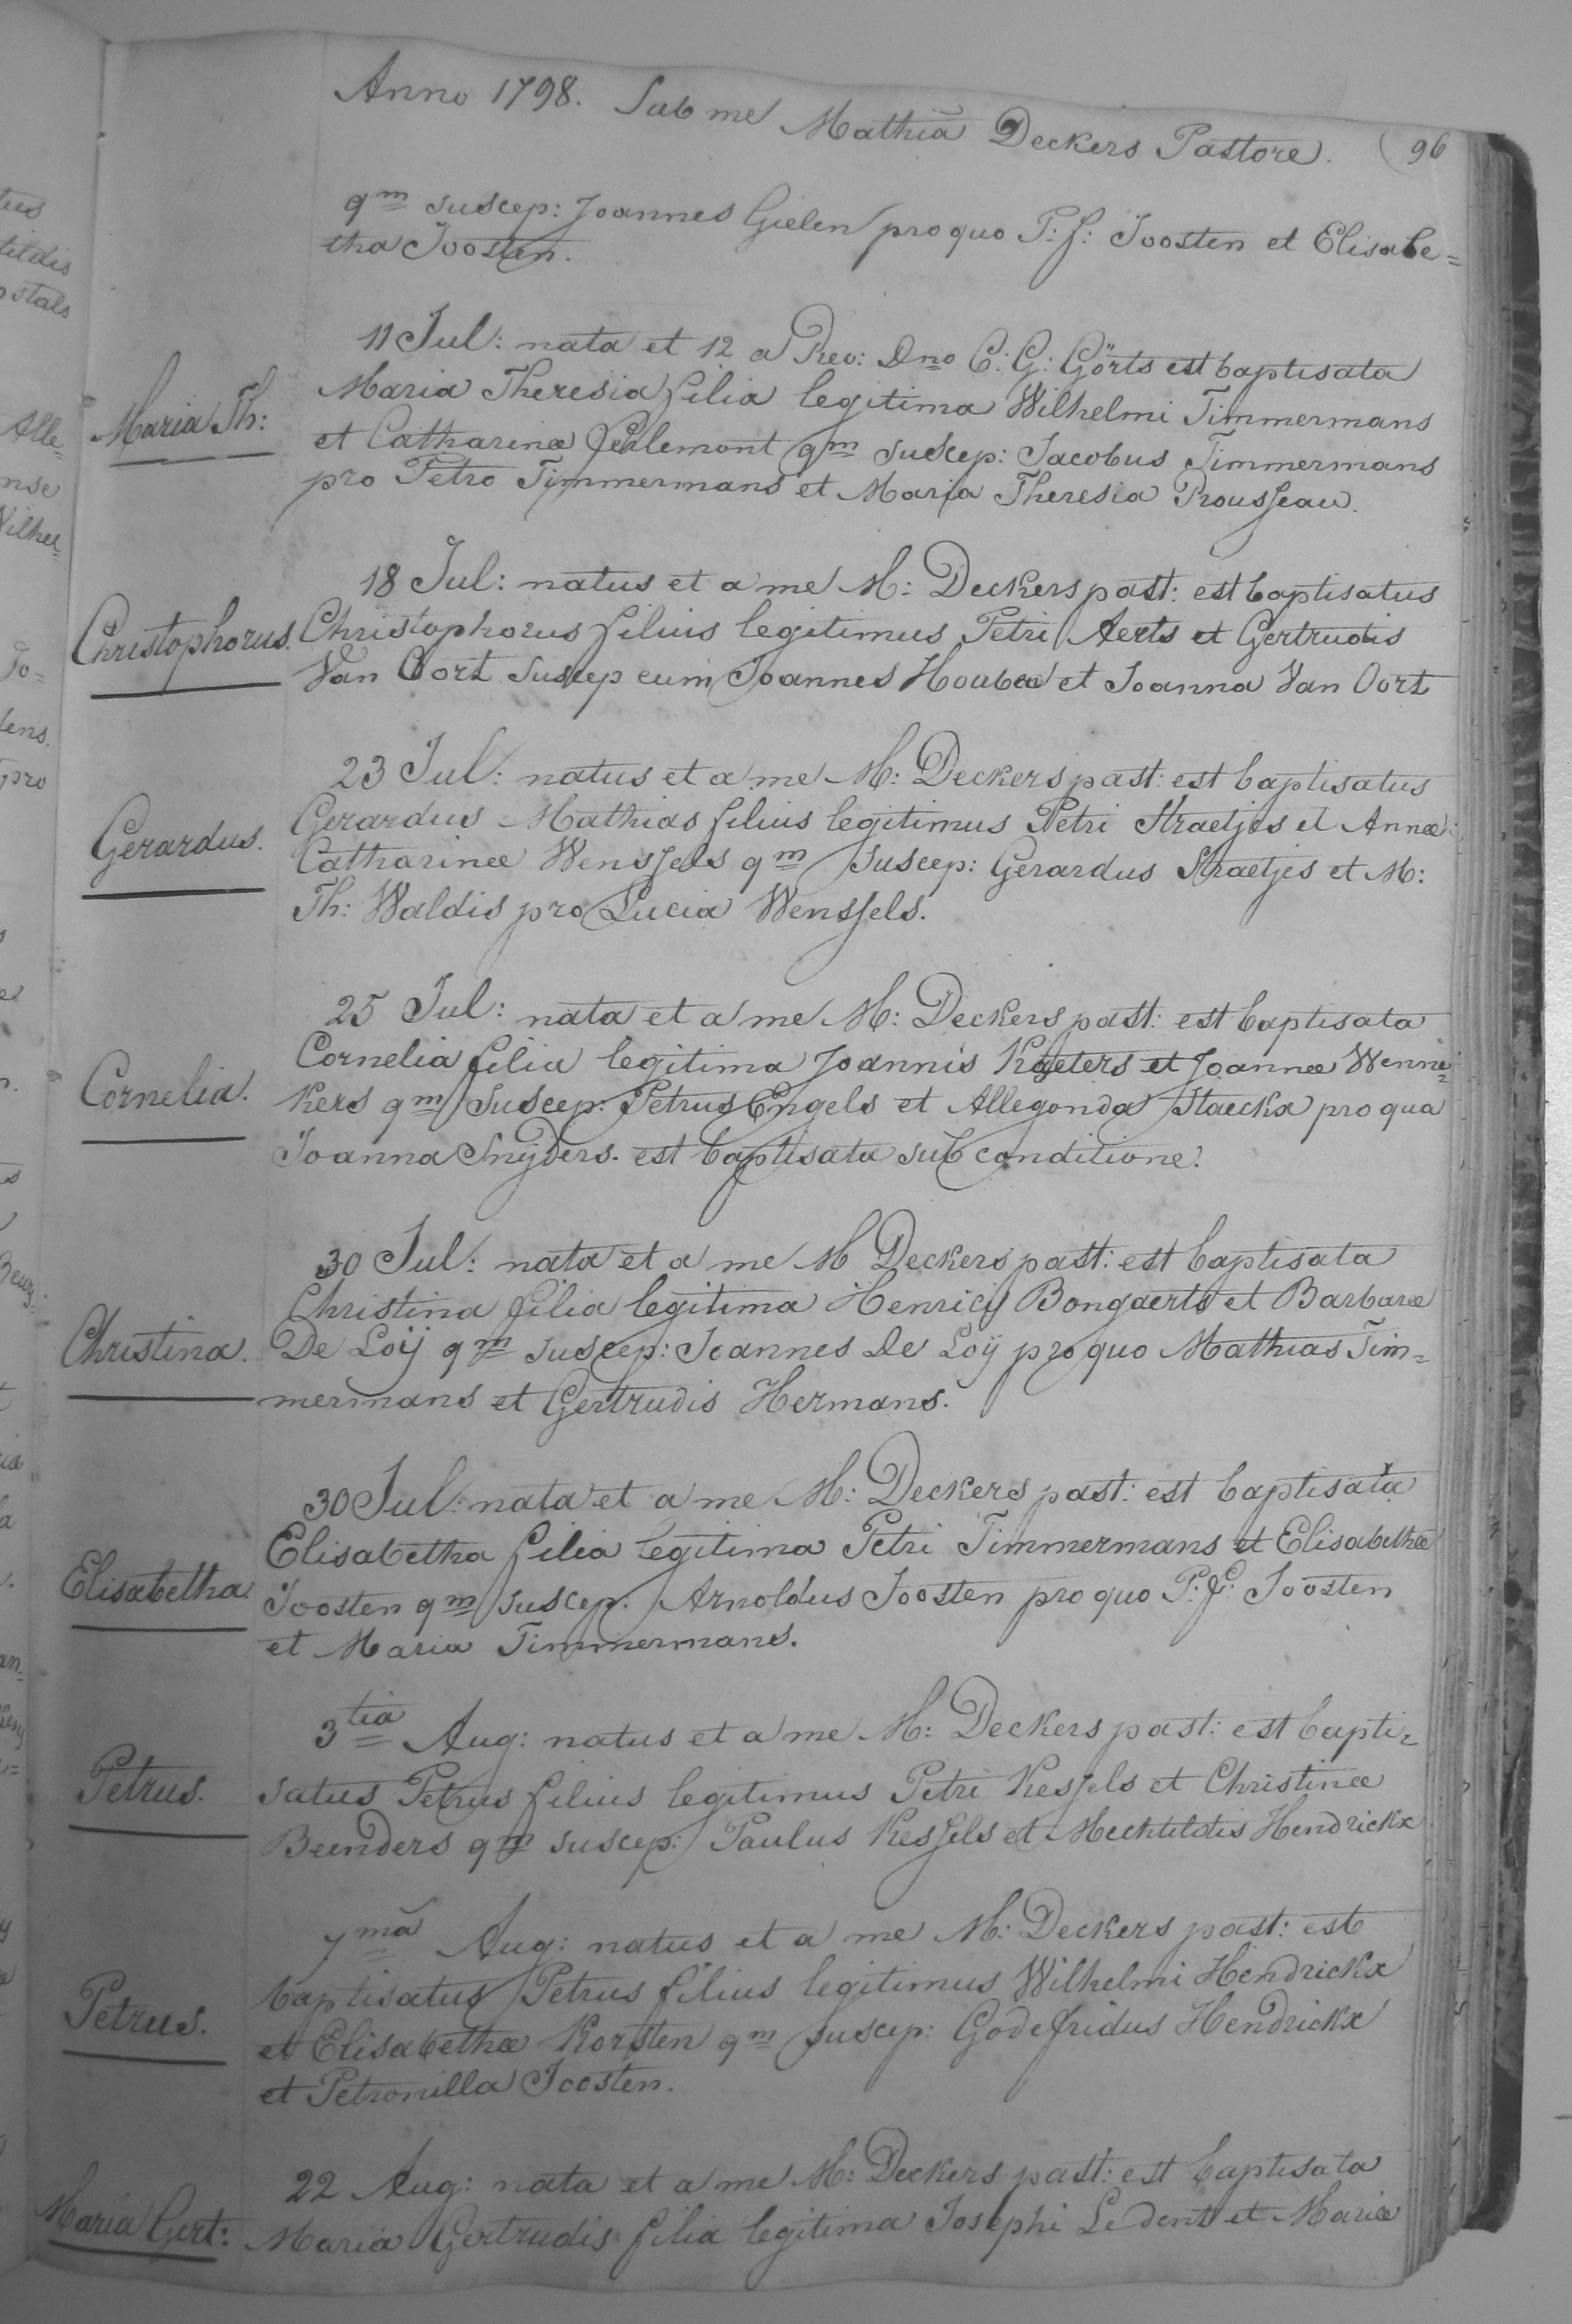 Anno 1798. Sub me Mathiã Deckers Pastore. (96
qm suscep: Joannes Gielen pro quo P: J: Joosten et Elisabe=
tha Joosten.
11 Jul: nata et 12 a Rev: Dno C: G: Görts est baptisata
Maria Th: Maria Theresia filia legitima Wilhelmi Timmermans
et Catharinæ qm suscep: Jacobus Timmermans
pro Petro Timmermans et Maria Theresia
18 Jul: natus et a me M: Deckers past: est baptisatus
Christophorus. Christophorus filius legitimus Petri Aerts et Gertrudis
Van Oort suscep eum Joannes Houben et Joanna Van Oort
23 Jul: natus et a me M: Deckers past: est baptisatus
Gerardus. Gerardus Mathias filius legitimus Petri Straetjes et Annæ
Catharinæ Wenssels qm suscep: Gerardus Straetjes et M:
Th: Waldis pro Lucia Wenssels.
25 Jul: nata et a me M: Deckers past: est baptisata
Cornelia. Cornelia filia legitima Joannis et Joannæ Wenne=
kers qm suscep: Petrus Engels et Allegonda Staeckx pro qua
Joanna Snÿders. est baptisata sub conditione.
30 Jul: nata et a me M Deckers past: est baptisata
Christina. Christina filia legitima Henrici Bongaerts et Barbaræ
De Loÿ qm suscep: Joannes De Loÿ pro quo Mathias Tim=
mermans et Gertrudis Hermans.
30 Jul: nata et a me M: Deckers past: est baptisata
Elisabetha. Elisabetha filia legitima Petri Timmermans et Elisabethæ
Joosten qm suscep: Arnoldus Joosten pro quo P: J: Joosten
et Maria Timmermans.
3tia Aug: natus et a me M: Deckers past: est bapti=
Petrus. satus Petrus filius legitimus Petri Kessels et Christinæ
Beenders qm suscep: Paulus Kessels et Mechtildis Hendrickx
7mã Aug: natus et a me M: Deckers past: est
Petrus. baptisatus Petrus filius legitimus Wilhelmi Hendrickx
et Elisabethæ Korsten qm suscep: Godefridus Hendrickx
et Petronilla Joosten.
22 Aug: nata et a me M: Deckers past: est baptisata
Maria Gert: Maria Gertrudis filia legitima Josephi Ledent et Mariæ